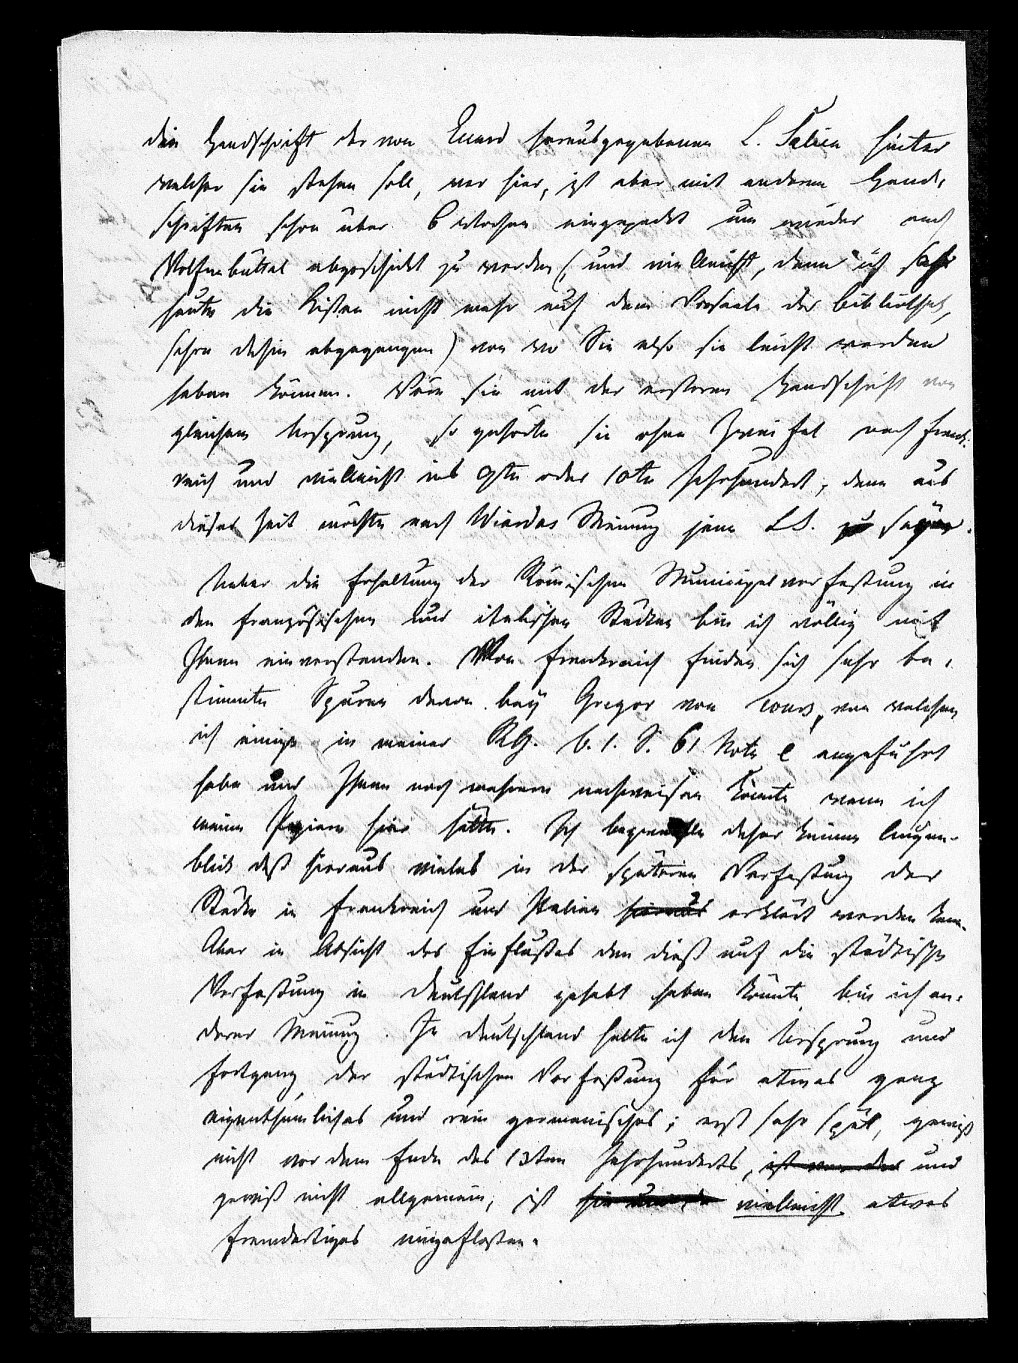 die Handschrift der von Eccard herausgegebenen L. Salica hinter
welcher sie stehen soll, war hier, ist aber mit anderen Hand-
schriften schon über 6 Wochen eingepackt um wieder nach
Wolfenbüttel abgeschickt zu werden (und vielleicht, denn ich sah
heute die Kisten nicht mehr auf dem Vorsaale der Bibliothek,
schon dahin abgegangen) von wo Sie also sie leicht werden
haben können. Wäre sie mit der ersteren Handschrift von
gleichem Ursprung, so gehörte sie ohne Zweifel nach Frank-
reich und vielleicht ins 9te oder 10te Jahrhundert, denn aus
dieser Zeit möchte nach Wiardas Meinung jene LS. zu seyn.
Ueber die Erhaltung der Römischen Municipalverfassung in
den französischen und italischen Städten bin ich völlig mit
Ihnen einverstanden. Von Frankreich finden sich sehr be-
stimmte Spuren davon bey Gregor von Tours, von welchen
ich einige in meiner RG. b. 1. S. 61 Note e angeführt
habe und Ihnen noch mehrere nachweisen könnte wenn ich
meine Papiere hier hätte. Ich begreife daher keinen Augen-
blick daß hieraus vieles in der späteren Verfaßung der
Städte in Frankreich und Italien hieraus erklärt werden kann.
Aber in Absicht des Einflußes den dieß auf die städtische
Verfaßung in Deutschland gehabt haben könnte bin ich an-
derer Meinung. In Deutschland halte ich den Ursprung und
Fortgang der städtischen Verfaßung für etwas ganz
eigenthümliches und rein germanisches; erst sehr spät, gewiß
nicht vor dem Ende des 13ten Jahrhunderts, ist von der und
gewiß nicht allgemein, ist hie und da vielleicht etwas
fremdartiges eingefloßen.